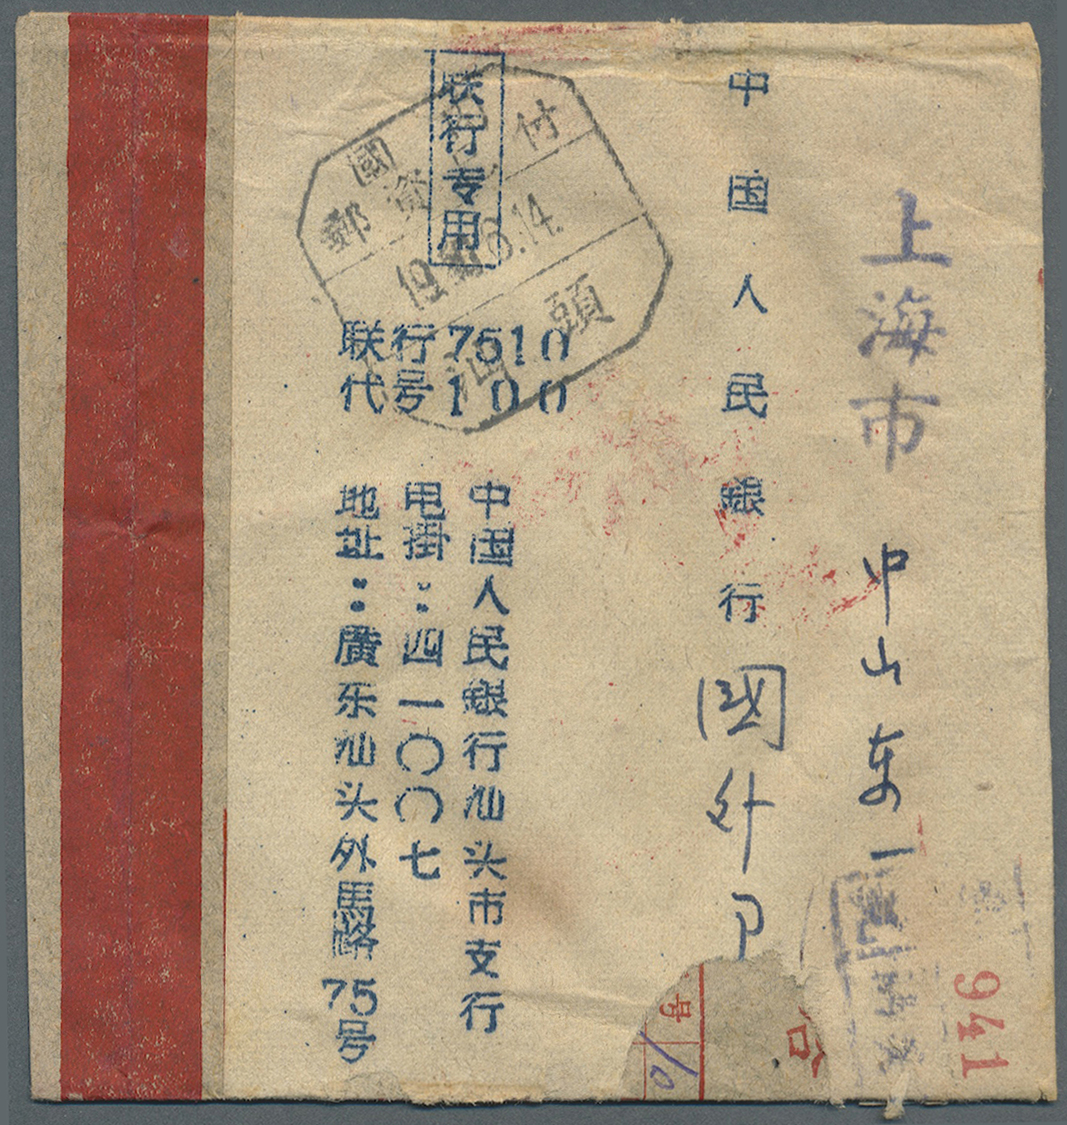 上海市 中山东一
中国人民銀行 國外卩
联行专用
國 付
郵資 付
6.14.
汕頭
联行7510
代号100
中国人民銀行汕头市支行
电掛：四一〇〇七
地址：廣东汕头外馬路75号
941
号
10